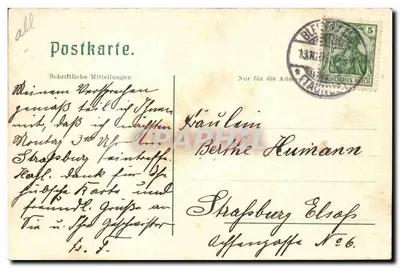 all
Postkarte.
Schriftliche Mitteilungen
Nur für die Adresse
5
Meinem Versprechen
gemäss teil ich Ihnen
mit, dass ich nächsten
Montag 3 Uhr in
Strassburg eintreffe.
Hzl. dank für Ihre
hübsche Karte und
freundl. Grüsse an
Sie u. Ihre Geschwister
Fräulein
Berthe Heimann
Strassburg Elsass
No 6.